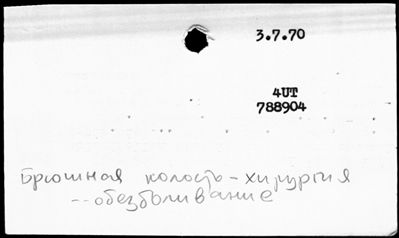 3.7.70
4UT
788904
Брюшная полость - хирургия
-- обезболивание